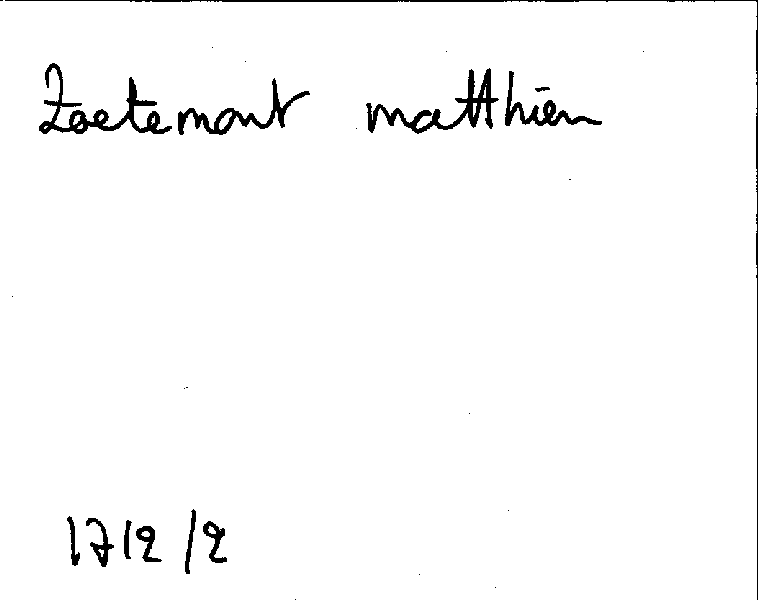 Zoetemont matthieu
1712/2